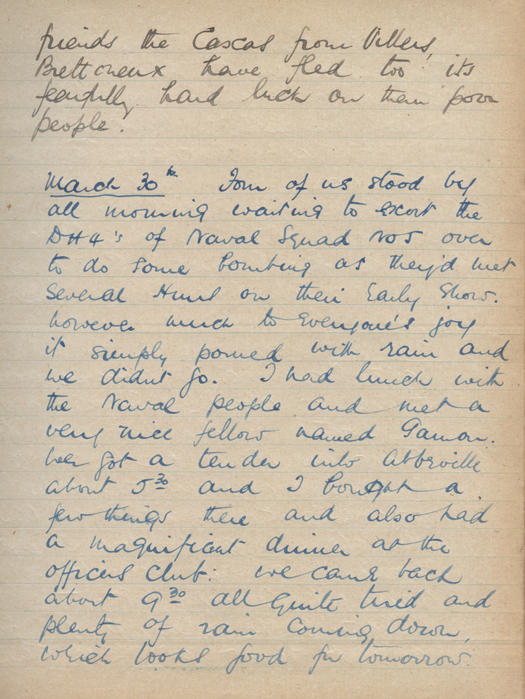 friends the Cascas from Villers,
Brettoneux have fled too its
fearfully hard luck on them poor
people.
March 30th Four of us stood by
all morning waiting to escort the
DH4's of Naval Squad No5 over
to do some bombing as they'd met
several Huns on their Early Show.
however much to Everyone's joy
it simply poured with rain and
we didnt go. I had lunch with
the Naval people and met a
very nice fellow named Gamon.
we got a tender into Abbeville
about 5 30 and I bought a
few things there and also had
a magnificent dinner at the
officers club: we came back
about 9 30 all quite tired and
plenty of rain coming down,
which looks good for tomorrow.